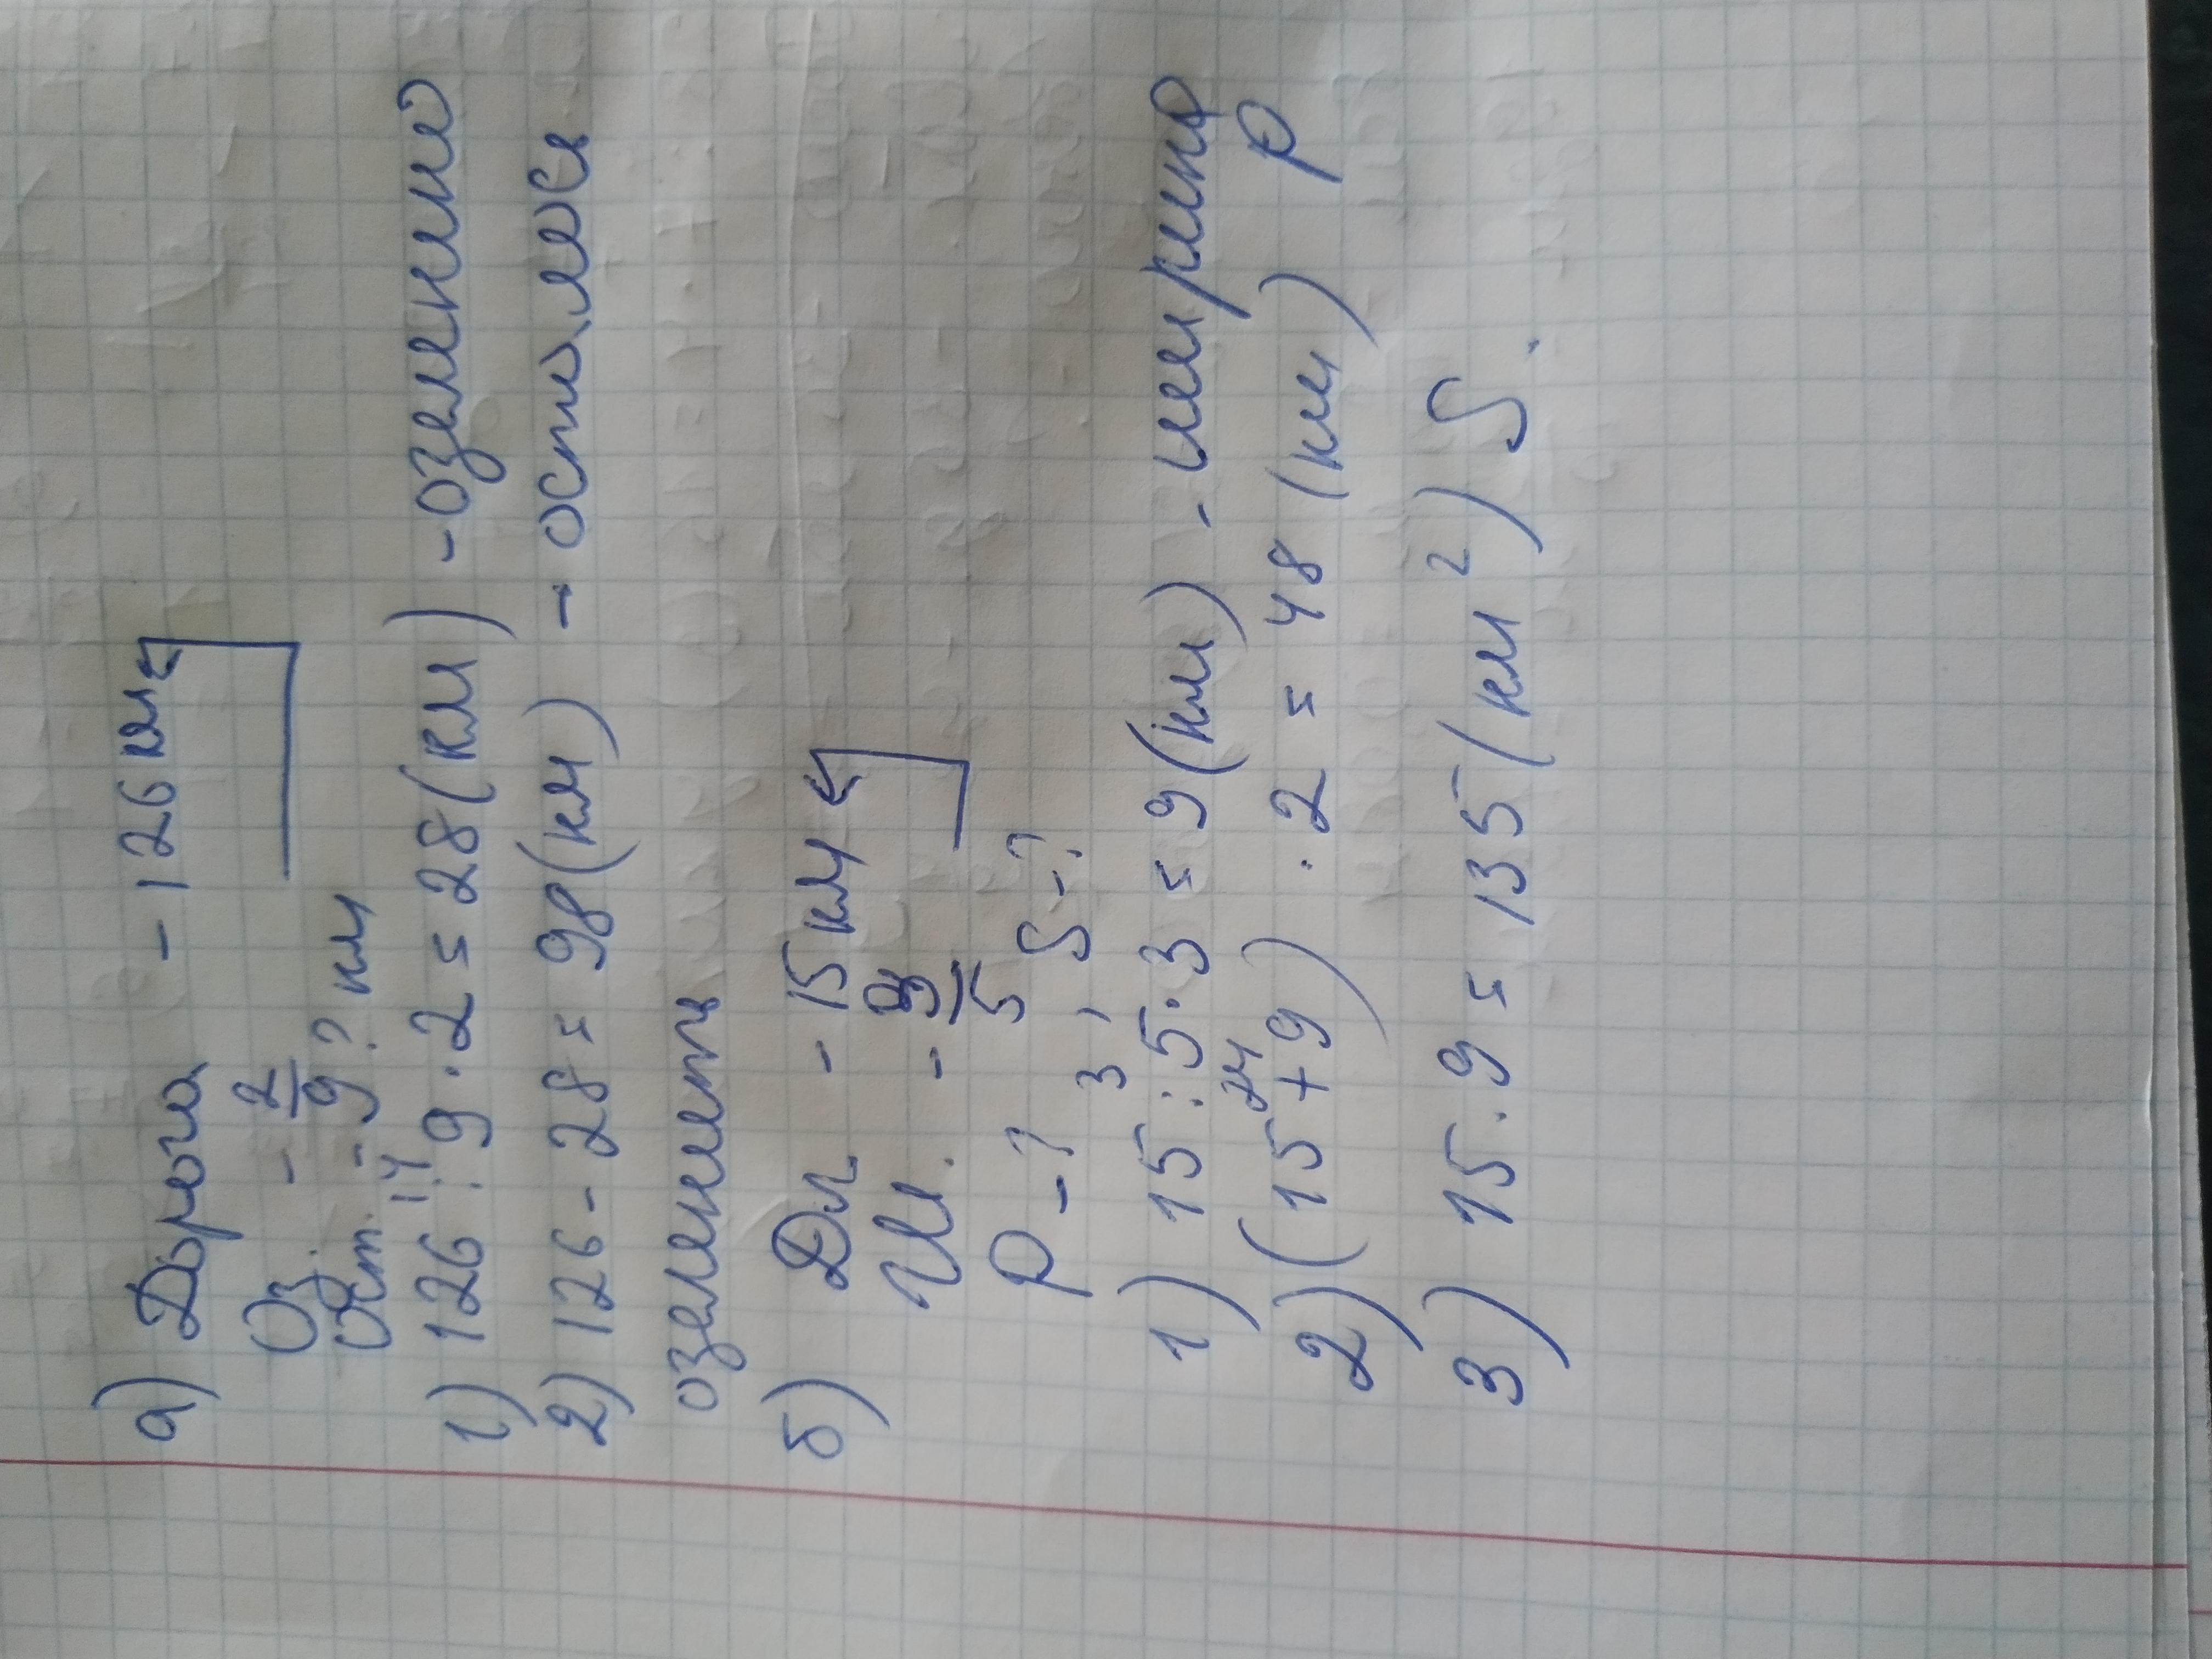 а) Дорога - 126 км
Оз. - 2/9
Ост. - ? км
14
1) 126 : 9 · 2 = 28 (км) - озеленено
2) 126 - 28 = 98 (км) - осталось
озеленить
б) Дл - 15 км
Ш. - 3/5
P - ? , S - ?
3
1) 15 : 5 · 3 = 9 (км) - ширина
24
2) (15 + 9) · 2 = 48 (км) P
3) 15 · 9 = 135 (км²) S.